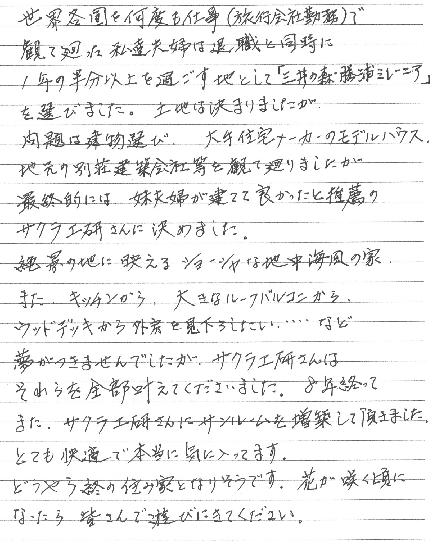 世界各国を何度も仕事(旅行会社勤務)で
観て廻った私達夫婦は退職と同時に
1年の半分以上を過ごす地として「三井の森勝浦ミレーニア」
を選びました。土地は決まりましたが
問題は建物選び、大手住宅メーカーのモデルハウス、
地元の別荘建築会社等を観て廻りましたが
最終的には妹夫婦が建てて良かったと推薦の
サクラ工研さんに決めました。
絶景の地に映えるゴージャな地中海風の家、
また、キッチンから、大きなルーフバルコニから、
ウッドデッキから外房を見下ろしたい‥‥など
夢がつきませんでしたが、サクラ工研さんは
それらを全部叶えてくださいました。8年経って
また、サクラ工研さんにサンルームを増築して頂きました。
とても快適で本当に気に入ってます。
どうやら終の住み家となりそうです。花が咲く頃に
なったら皆さんで遊びにきてください。